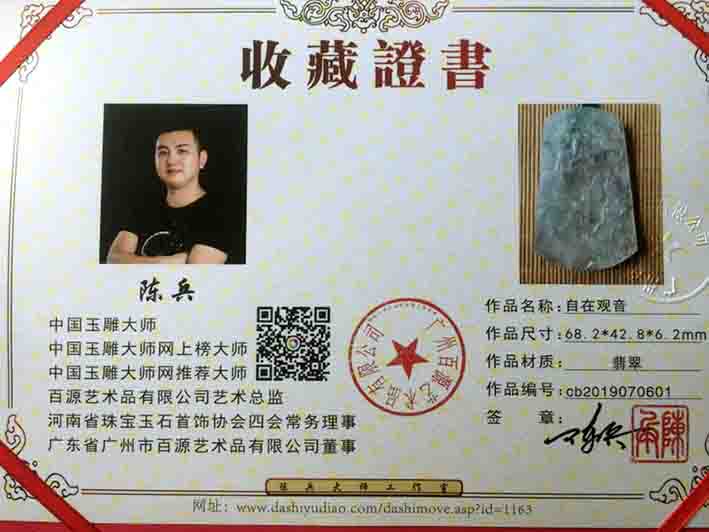 收藏證書
陈兵
中国玉雕大师
中国玉雕大师网上榜大师
中国玉雕大师网推荐大师
百源艺术品有限公司艺术总监
河南省珠宝玉石首饰协会四会常务理事
广东省广州市百源艺术品有限公司董事
广州百源艺术品有限公司
作品名称:自在观音
作品尺寸:68.2*42.8*6.2mm
作品材质: 翡翠
作品编号:cb2019070601
签 章:
陈兵大师工作室
网址: www.dashiyudiao.com/dashimove.asp?id=1163